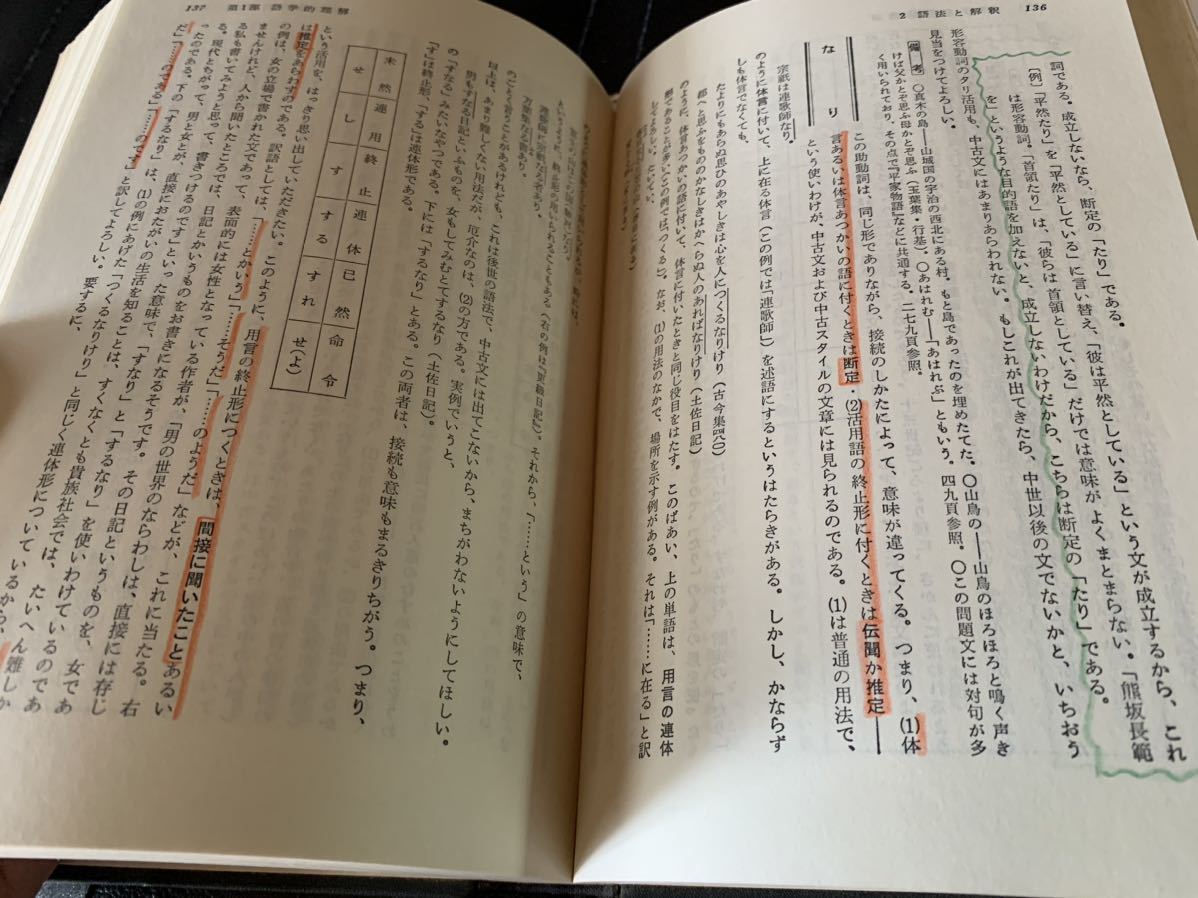 136
2 語法と解釈
詞である。成立しないなら、断定の「たり」である。
〔例〕「平然たり」を「平然としている」に言い替え、「彼は平然としている」という文が成立するから、これ
は形容動詞。「首領たり」は、「彼らは首領としている」だけでは意味がよくまとまらない。「熊坂長範
を」というような目的語を加えないと、成立しないわけだから、こちらは断定の「たり」である。
形容動詞のタリ活用も、中古文にはあまりあらわれない。もしこれが出てきたら、中世以後の文でないかと、いちおう
見当をつけてよろしい。
備考 〇真木の島――山城国の宇治の西北にある村。もと島であったのを埋めたてた。〇山鳥の――山鳥のほろほろと鳴く声き
けば父かとぞ思ふ母かとぞ思ふ(玉葉集・行基)。〇あはれむ――「あはれぶ」ともいう。四九頁参照。〇この問題文には対句が多
く用いられており、その点で『平家物語』などに共通する。二七九頁参照。
なり
この助動詞は、同じ形でありながら、接続のしかたによって、意味が違ってくる。つまり、(1)体
言あるいは体言あつかいの語に付くときは断定・(2)活用語の終止形に付くときは伝聞か推定――
という使いわけが、中古文および中古スタイルの文章には見られるのである。(1)は普通の用法で、
宗祇は連歌師なり。
のように体言に付いて、上に在る体言(この例では「連歌師」)を述語にするというはたらきがある。しかし、かならず
しも体言でなくても、
たよりにもあらぬ思ひのあやしきは心を人につくるなりけり(古今集四八〇)
都へと思ふをもののかなしきはかへらぬ人のあればなりけり(土佐日記)
のように、体言あつかいの語に付いて、体言に付いたときと同じ役目をはたす。このばあい、上の単語は、用言の連体
形であることが多い(この例では「つくる」)。なお、(1)の用法のなかで、場所を示す例がある。それは「……に在る」と訳
してよろしい。
137
第1部 語学的理解
のごとく言うことがあるけれども、これは後世の語法で、中古文には出てこないから、まちがわないようにしてほしい。
以上は、あまり難しくない用法だが、厄介なのは、(2)の方である。実例でいうと、
男もすなる日記といふものを、女もしてみむとてするなり(土佐日記)。
の「すなる」みたいなやつである。下には「するなり」とある。この両者は、接続も意味もまるきりちがう。つまり、
「す」は終止形、「する」は連体形である。
未然 連用 終止 連体 已然 命令
せ し す する すれ せ(よ)
という活用を、はっきり思い出していただきたい。このように、用言の終止形につくときは、間接に聞いたことあるい
は推定をあらわすのである。訳語としては、「……とかいう」「……そうだ」「……のようだ」などが、これに当たる。右
の例は、女の立場で書かれた文であって、表面的には女性となっている作者が、「男の世界のならわしは、直接には存じ
ませんけれど、人から聞いたところでは、日記とかいうものをお書きになるそうです。その日記というものを、女であ
る私も書いてみようと思って、書きつけるのです」といった意味で、「すなり」と「するなり」を使いわけているのであ
ったのである。現代とちがって、男と女とが、直接におたがいの生活を知ることは、すくなくとも貴族社会では、たいへん難しか
ったのである。下の「するなり」は、(1)の例にあげた「つくるなりけり」と同じく連体形についているから、
だ」「……のである」「……のです」と訳してよろしい。要するに、